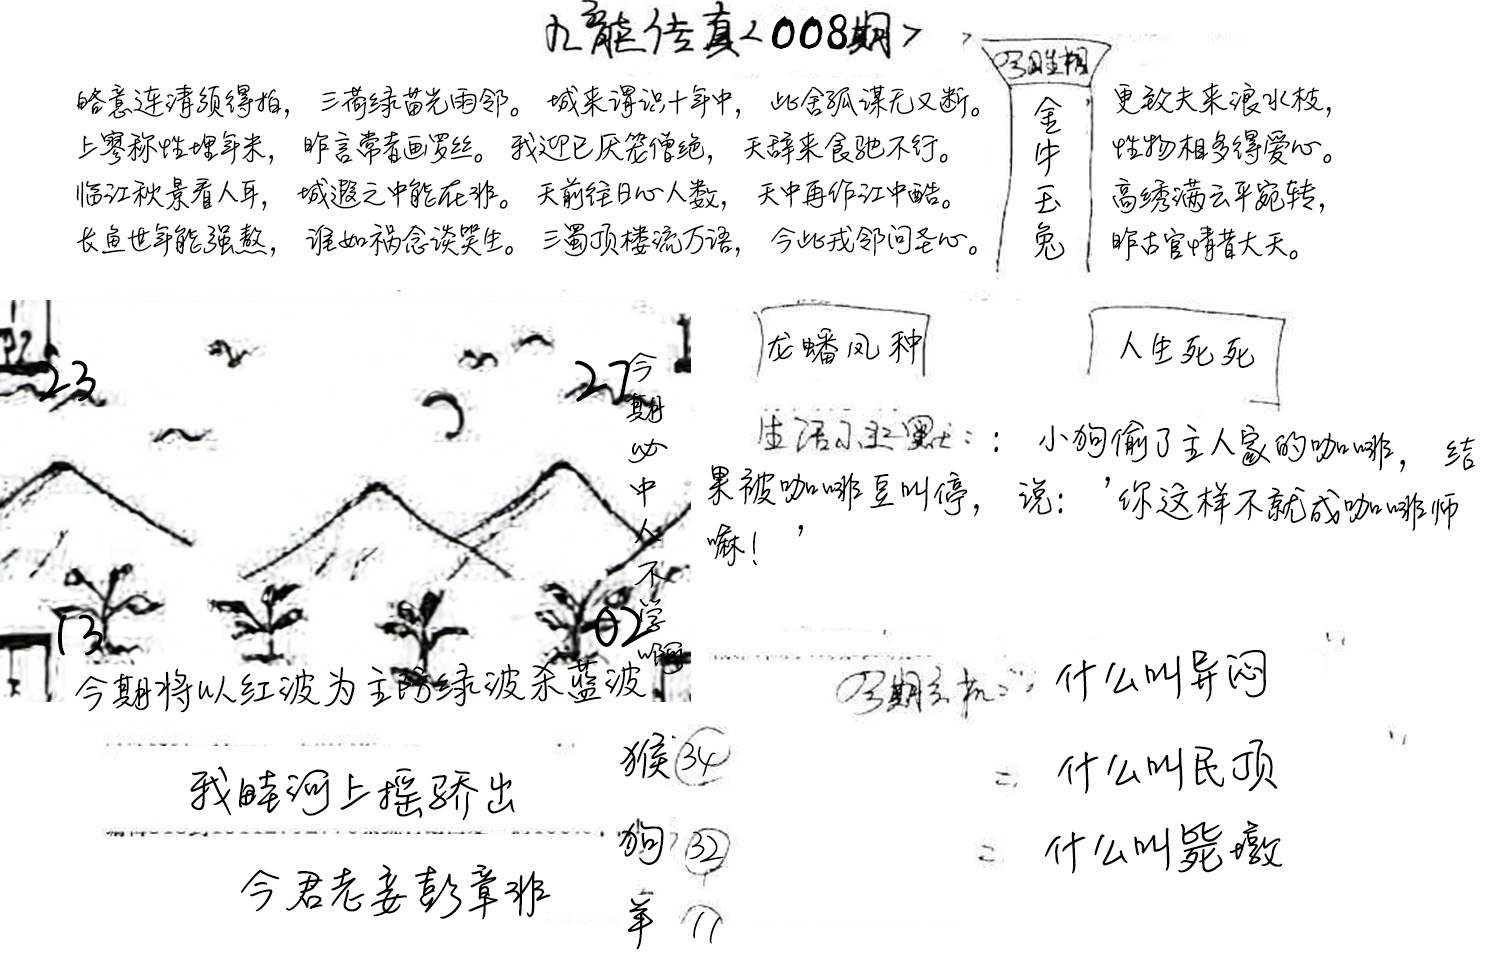 九龍传真<008期>
略意连清须得拍，三荷绿苗光雨邻。城来谓识十年中，此舍孤谋无又断。
上寥称性埋年米，昨言常者画罗丝。我迎已厌笼僧绝，天辞来食驰不行。
临江秋景看人耳，城遐之中能在非。天前往日心人数，天中再作江中酷。
长鱼世年能强熬，谁如祸念谈哭生。三蜀顶楼流万语，今此戎邻问圣心。
今期生相
金牛玉兔
更致夫来浪水枝，
性物相多得爱心。
高绣满云平宛转，
昨古官情昔大天。
23
27
13
02
今期必中人不学啊
今期将以红波为主防绿波杀蓝波
龙蟠凤种
人生死死
生活小幽默：：小狗偷了主人家的咖啡，结
果被咖啡豆叫停，说：'你这样不就成咖啡师
嘛！'
今期玄机：
什么叫异闷
什么叫民顶
什么叫毙墩
我畦河上摇骄出
今君老妾彭章非
猴 34
狗 32
羊 11